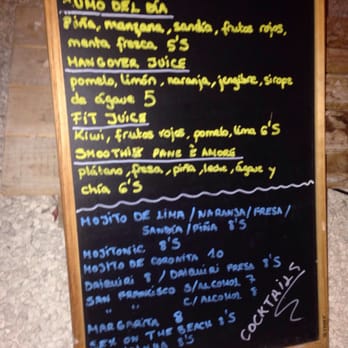 ZUMO DEL DÍA
Piña, manzana, sandía, frutos rojos,
menta fresca 5'5
HANGOVER JUICE
pomelo, limón, naranja, jengibre, sirope
de ágave 5
FIT JUICE
Kiwi, frutos rojos, pomelo, lima 6'5
SMOOTHIE PANE È AMORE
plátano, fresa, piña, leche, ágave y
chía 6'5
MOJITO DE LIMA / NARANJA / FRESA /
SANDÍA / PIÑA 8'5
MOJITONIC 8'5
MOJITO DE CORONITA 10
DAIQUIRI 8 / DAIQUIRI FRESA 8'5
SAN FRANCISCO S/ALCOHOL 7
" " C/ALCOHOL 8
MARGARITA 8
SEX ON THE BEACH 8'5
8'5
COCKTAILS